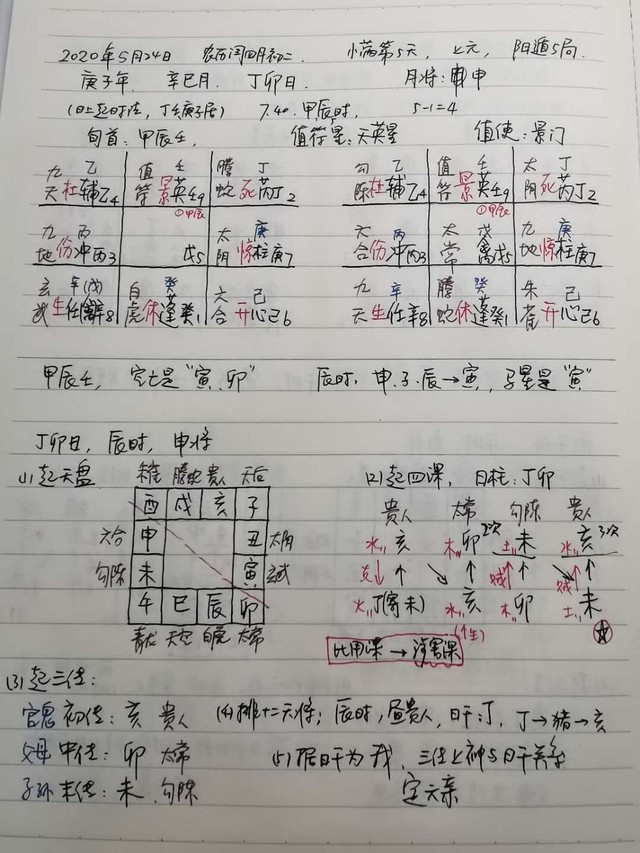 2020年5月24日 农历闰四月初二、 小满第5天, 上元, 阳遁5局.
庚子年、 辛巳月、 丁卯日、 月将: 申
(日上起时法, 丁壬庚子居) 7.40. 甲辰时, 5-1=4
旬首: 甲辰壬, 值符星: 天英星 值使: 景门
九 乙 值 壬 腾 丁 勾 乙 值 壬 太 丁
天杜辅乙4 符景英壬9 蛇死芮丁2 陈杜辅乙4 符景英壬9 阴死芮丁2
①甲辰 ①甲辰
九 丙 太 庚 六 丙 太 戊 九 庚
地伤冲丙3 戊5 阴惊柱庚7 合伤冲丙3 常禽戊5 地惊柱庚7
玄 辛(戊) 白 癸 六 己 九 辛 腾 癸 朱 己
武生任辛8 虎休蓬癸1 合开心己6 天生任辛8 蛇休蓬癸1 雀开心己6
甲辰壬, 空亡是"寅、卯" 辰时, 申.子.辰→寅, 马星是"寅"
丁卯日, 辰时, 申将
(1)起天盘 朱雀 腾蛇 贵人 天后 (2)起四课, 日柱: 丁卯
酉 戌 亥 子 贵人 太常 勾陈 贵人
六合 申 丑 太阴 水亥 木卯 2次 土未 水亥 3次
勾陈 未 寅 玄武 克 贼 贼
午 巳 辰 卯 火丁(寄未) 水亥 木卯 土未
青龙 天空 白虎 太常
比用课→涉害课
(3)起三传:
官鬼 初传: 亥 贵人 (4)排十二天将; 辰时, 昼贵人, 日干:丁, 丁→猪→亥
父母 中传: 卯 太常 (5)据日干为我, 三传上神与日干关系
子孙 末传: 未、勾陈 定六亲